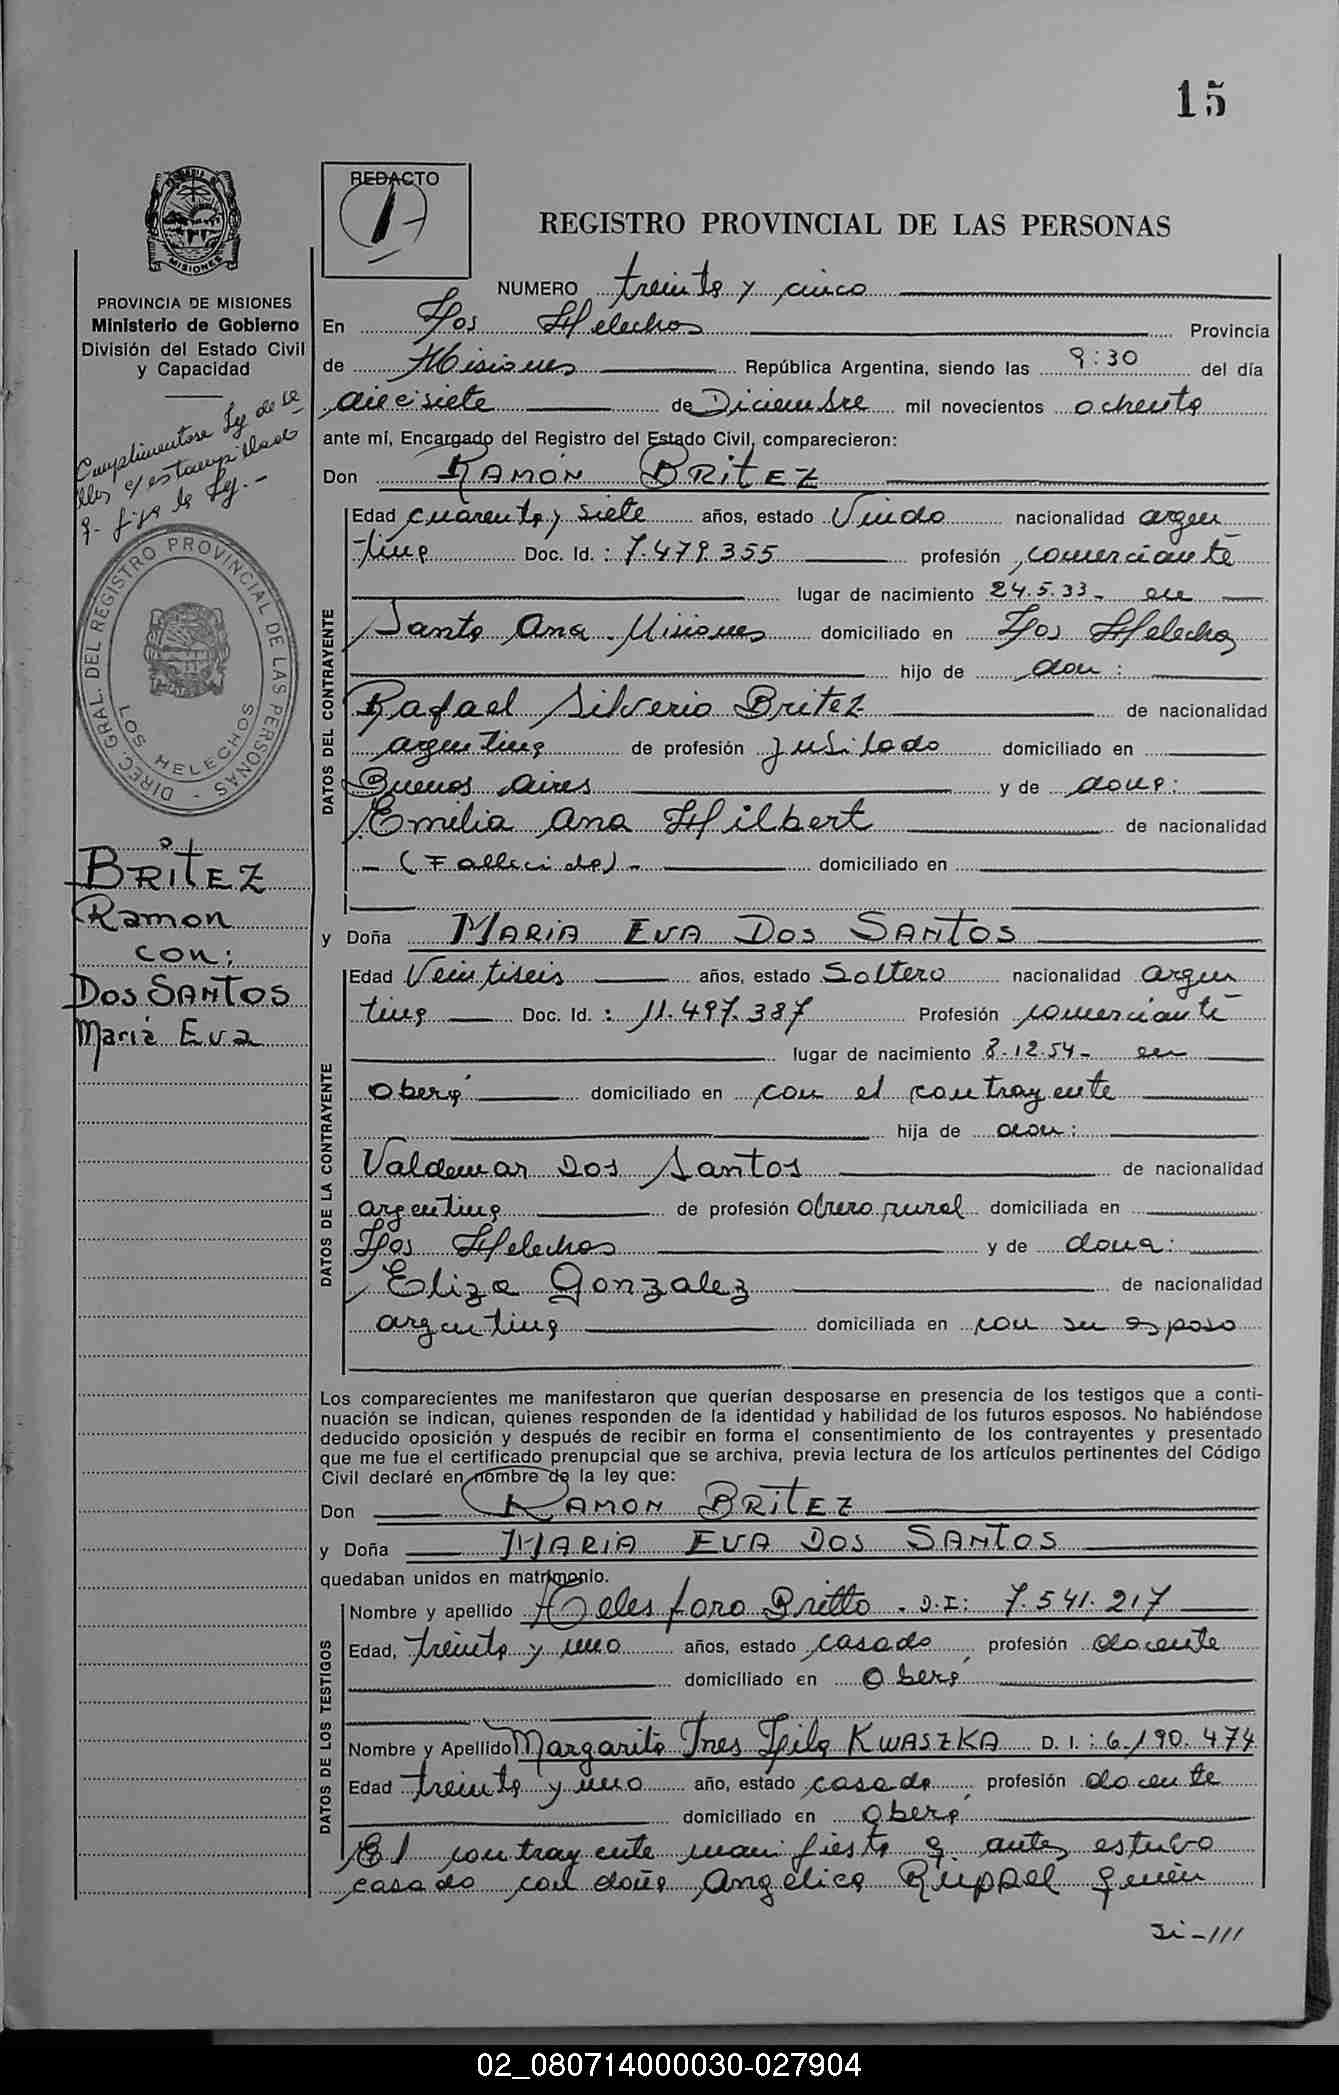 15
REDACTO
REGISTRO PROVINCIAL DE LAS PERSONAS
MISIONES
PROVINCIA DE MISIONES
Ministerio de Gobierno
División del Estado Civil
y Capacidad
Cumplimentose Ley de se
llos c/ estampillado
q. fija la Ley.-
DIREC. GRAL. DEL REGISTRO PROVINCIAL DE LAS PERSONAS -
LOS HELECHOS
BRITEZ
Ramon
con:
DOS SANTOS
Maria Eva
NUMERO treinta y cinco
En Los Helechos Provincia
de Misiones República Argentina, siendo las 9:30 del día
diecisiete de Diciembre mil novecientos ochenta
ante mí, Encargado del Registro del Estado Civil, comparecieron:
Don RAMÓN BRITEZ
DATOS DEL CONTRAYENTE
Edad cuarenta y siete años, estado Viudo nacionalidad argen
tina Doc. Id. : 7.479.355 profesión comerciante
lugar de nacimiento 24.5.33- en
Santa Ana - Misiones domiciliado en Los Helechos
hijo de don :
Rafael Silverio Britez de nacionalidad
argentina de profesión jubilado domiciliado en
Buenos Aires y de doña:
Emilia Ana Hilbert de nacionalidad
- (Fallecida) - domiciliado en
y Doña MARIA EVA DOS SANTOS
DATOS DE LA CONTRAYENTE
Edad Veintiseis años, estado Soltera nacionalidad argen
tina Doc. Id. : 11.497.387 Profesión comerciante
lugar de nacimiento 8-12-54- en
Oberá domiciliado en con el contrayente
hija de don:
Valdemar Dos Santos de nacionalidad
argentina de profesión Obrero rural domiciliada en
Los Helechos y de doña:
Eliza Gonzalez de nacionalidad
argentina domiciliada en con su esposo
Los comparecientes me manifestaron que querían desposarse en presencia de los testigos que a conti-
nuación se indican, quienes responden de la identidad y habilidad de los futuros esposos. No habiéndose
deducido oposición y después de recibir en forma el consentimiento de los contrayentes y presentado
que me fue el certificado prenupcial que se archiva, previa lectura de los artículos pertinentes del Código
Civil declaré en nombre de la ley que:
Don RAMON BRITEZ
y Doña MARIA EVA DOS SANTOS
quedaban unidos en matrimonio.
DATOS DE LOS TESTIGOS
Nombre y apellido Britto - D.I: 7.541.217
Edad, treinta y uno años, estado casado, profesión docente
domiciliado en Oberá
Nombre y Apellido Margarita Ines KWASZKA D. I. : 6.190.474
Edad treinta y uno año, estado casada, profesión docente
domiciliado en Oberá
El contrayente manifiesta q. antes estuvo
casado con doña Angélica Ruppel quien
si-///
02_080714000030-027904